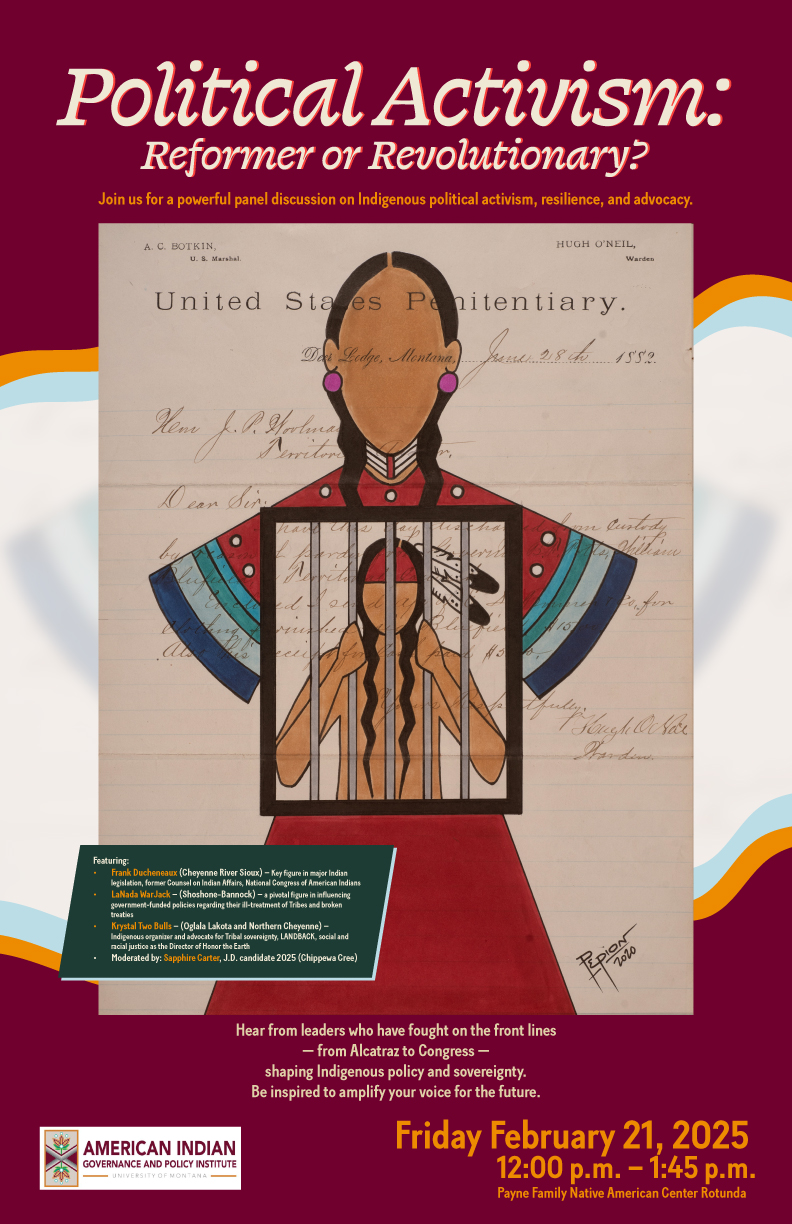 Political Activism:
Reformer or Revolutionary?
Join us for a powerful panel discussion on Indigenous political activism, resilience, and advocacy.
A. C. BOTKIN,
U. S. Marshal.
HUGH O'NEIL,
Warden
United States Penitentiary.
Deer Lodge, Montana, June 28th 1889.
Hon J. P. Woolman
Territorial
Dear Sir:
have this day discharged from custody
by reason of pardon William
Territory
Enclosed I send for
clothing furnished $15
Also his receipt for cash paid $5
Yours Respectfully,
Hugh O'Neil
Warden.
PEPION
2020
Featuring:
• Frank Ducheneaux (Cheyenne River Sioux) – Key figure in major Indian
legislation, former Counsel on Indian Affairs, National Congress of American Indians
• LaNada WarJack – (Shoshone-Bannock) – a pivotal figure in influencing
government-funded policies regarding their ill-treatment of Tribes and broken
treaties
• Krystal Two Bulls – (Oglala Lakota and Northern Cheyenne) –
Indigenous organizer and advocate for Tribal sovereignty, LANDBACK, social and
racial justice as the Director of Honor the Earth
• Moderated by: Sapphire Carter, J.D. candidate 2025 (Chippewa Cree)
Hear from leaders who have fought on the front lines
— from Alcatraz to Congress —
shaping Indigenous policy and sovereignty.
Be inspired to amplify your voice for the future.
AMERICAN INDIAN
GOVERNANCE AND POLICY INSTITUTE
UNIVERSITY OF MONTANA
Friday February 21, 2025
12:00 p.m. – 1:45 p.m.
Payne Family Native American Center Rotunda